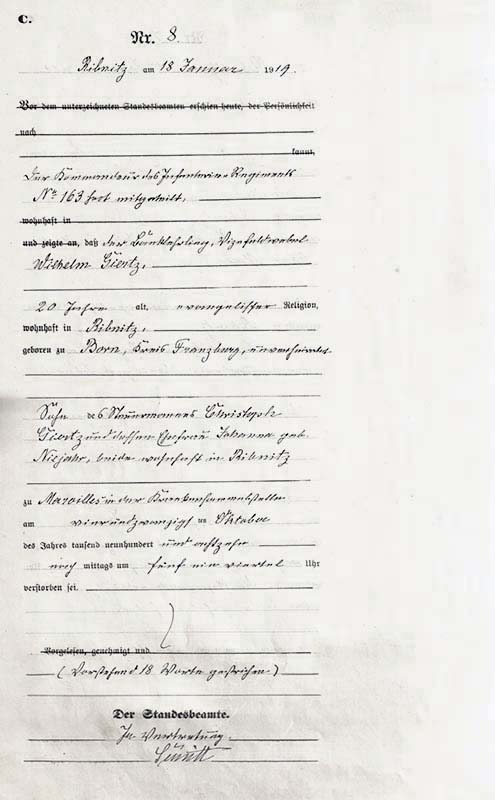 C.
Nr. 8.
Ribnitz am 18 Januar 1919.
Vor dem unterzeichneten Standesbeamten erschien heute, der Persönlichkeit
nach
kannt,
Der Kommandeur des Infanterie-Regiments
No 163 hat mitgeteilt,
wohnhaft in
und zeigte an, daß der Banklehrling, Vizefeldwebel
Wilhelm Giertz,
20 Jahre alt, evangelischer Religion,
wohnhaft in Ribnitz,
geboren zu Born, Kreis Franzburg, unverheiratet
Sohn des Steuermannes Christoph
Giertz und dessen Ehefrau Johanna geb.
Niejahr, beide wohnhaft in Ribnitz
zu Maroilles in der Krankensammelstelle
am vierundzwanzigsten Oktober
des Jahres tausend neunhundert und achtzehn
nach mittags um fünf ein viertel Uhr
verstorben sei.
Vorgelesen, genehmigt und
(Vorstehend 18 Worte gestrichen)
Der Standesbeamte.
In Vertretung.